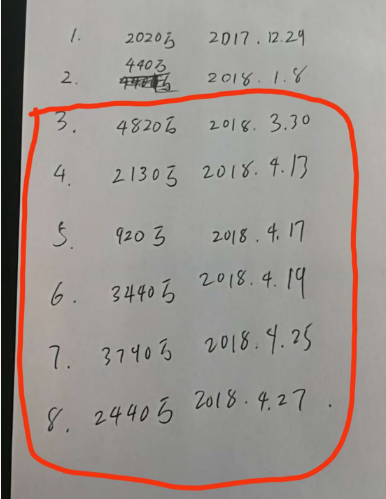 1. 2020万 2017.12.29
2. 440万 2018.1.8
3. 4820万 2018.3.30
4. 2130万 2018.4.13
5. 920万 2018.4.17
6. 3440万 2018.4.19
7. 3740万 2018.4.25
8. 2440万 2018.4.27.